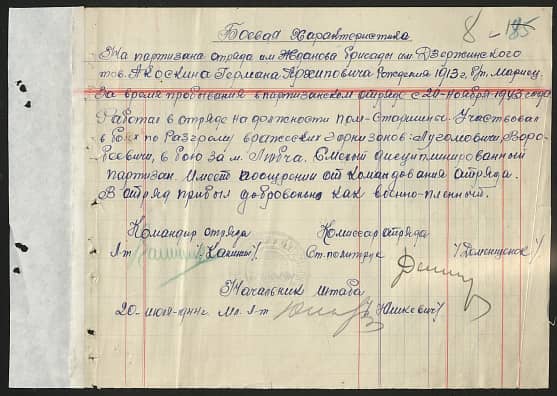 Боевая Характеристика
8-185
На партизана отряда им Жданова бригады им Дзержинского
тов. Акоскина Германа Архиповича Рождения 1913 г. б/п. Мариец.
За время пребывания в партизанском отряде с 20-ноября 1943 года
Работал в отряде на должности пом-Старшины. Участвовал
в боях по Разгрому вражеских гарнизонов: Лугомовичи, Воро-
беевичи, в бою за м. Любча. Смелый дисциплинированный
партизан. Имеет поощрении от командования отряда.
В отряд прибыл добровольно как военно-пленный.
Командир отряда Комиссар отряда
Л-т /Калины/ Ст. политрук /Доменщенок/
Начальник штаба
20-июля-1944г. Мл. л-т /Юшкевич/